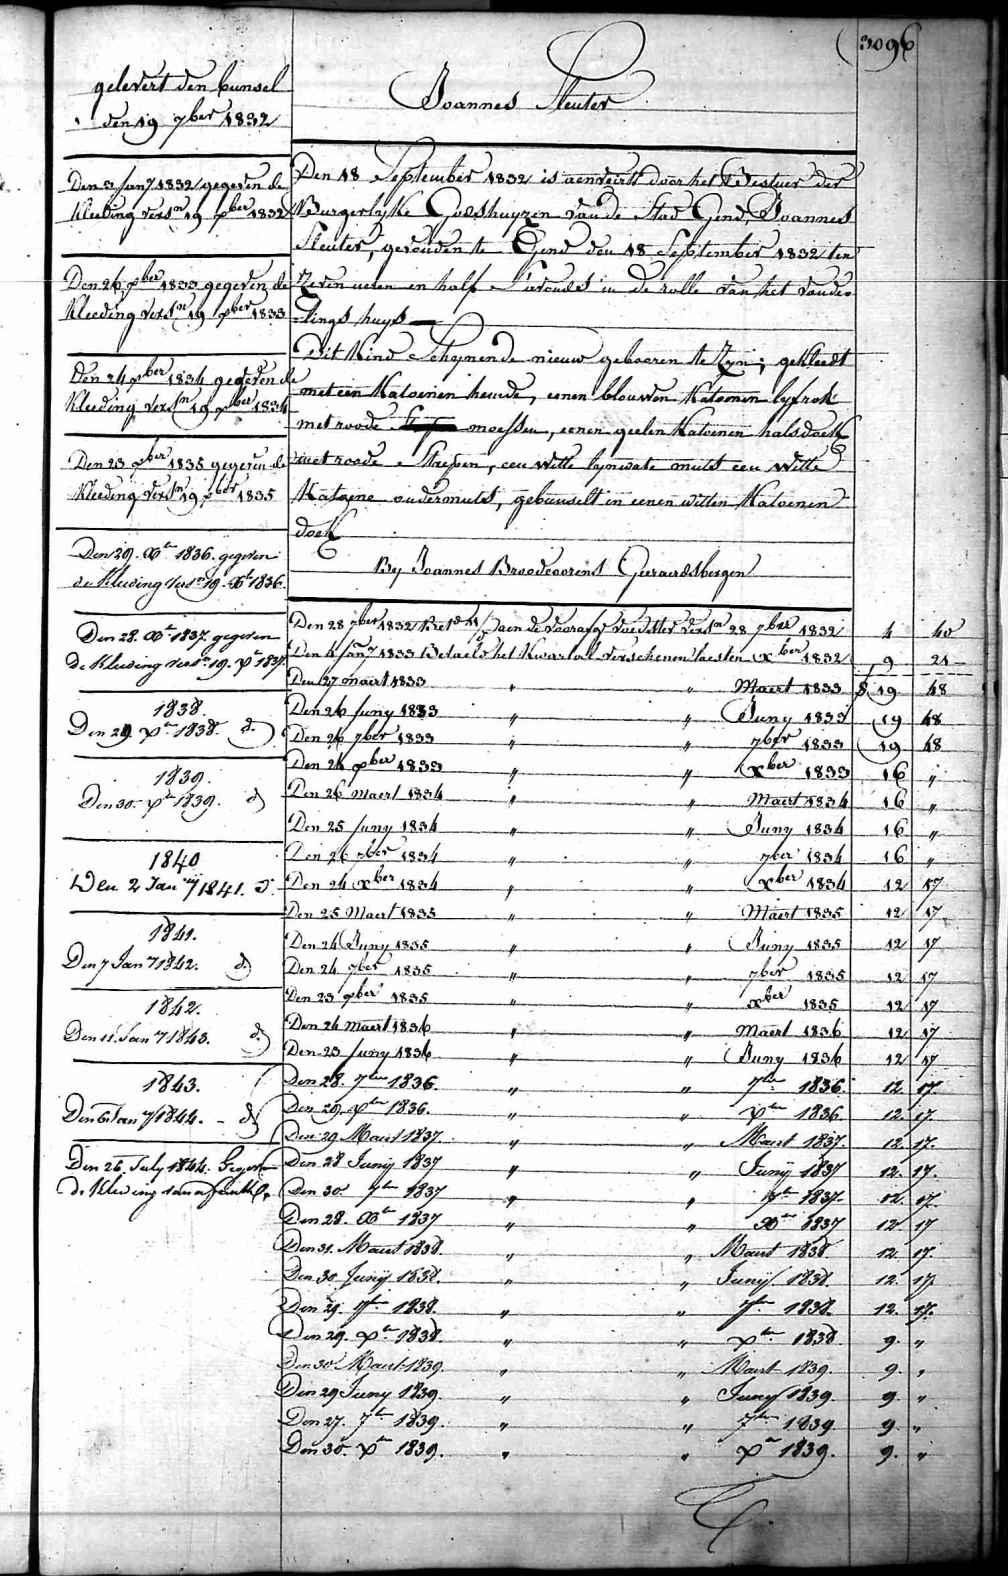 3096
gelevert den bunsel
den 19 7ber 1832
Joannes Sleuter
Den 18 September 1832 is aenveirdt door het Bestuer der
Burgerlyke Godshuyzen van de Stad Gend, Joannes
Sleuter, gevonden te Gend den 18 September 1832 ten
zeven uren en half S'avonds in de rolle van het vonde-
lings huys
Dit Kind Schynende nieuw gebooren te Zyn; gekleedt
met een Katoenen hemde, eenen blouwen Katoenen lyfrok
met roode moessen, eenen geelen Katoenen halsdoek
met roode Strepen, een witte lynwate muts een witte
Katoene ondermuts, gebunselt in eenen witten Katoenen
doek
By Joannes Broodcoorens Geeraerdsbergen
Den 3 Jany 1832 gegeven de
Kleeding versn 19 xber 1832
Den 26 xber 1833 gegeven de
Kleeding versn 19 xber 1833
Den 24 xber 1834 gegeven de
Kleeding versn 19 xber 1834
Den 23 xber 1835 gegeven de
Kleeding versn 19 xber 1835
Den 29. Xbr 1836. gegeven
de Kleeding versn 19. Xbr 1836.
Den 28. Xbr 1837. gegeven
de Kleeding versn 19. Xbr 1837.
1838.
Den 29 Xbr 1838. d.
1839.
Den 30. Xbr 1839. d
1840
Den 2 Jany 1841. d.
1841.
Den 7 Jany 1842. d.
1842.
Den 11. Jany 1843. d.
1843.
Den 6 Jany 1844. - d
Den 26. July 1844. Gegeven
de Kleeding van
Den 28 7ber 1832 aen de voorafg voedster versn 28 7ber 1832 4 40
Den 2 Jany 1833 Betaeld het Kwartael verschenen laesten xber 1832 9 21
Den 27 maert 1833 " " Maert 1833 19 48
Den 26 Juny 1833 " " Juny 1833 19 48
Den 26 7ber 1833 " " 7ber 1833 19 48
Den 26 xber 1833 " " xber 1833 16 "
Den 26 Maert 1834 " " Maert 1834 16 "
Den 25 Juny 1834 " " Juny 1834 16 "
Den 26 7ber 1834 " " 7ber 1834 16 "
Den 24 xber 1834 " " xber 1834 12 17
Den 25 Maert 1835 " " Maert 1835 12 17
Den 24 Juny 1835 " " Juny 1835 12 17
Den 24 7ber 1835 " " 7ber 1835 12 17
Den 23 xber 1835 " " xber 1835 12 17
Den 24 maert 1836 " " Maert 1836 12 17
Den 23 Juny 1836 " " Juny 1836 12 17
Den 28. 7ber 1836. " " 7ber 1836. 12. 17.
Den 29. xber 1836. " " xber 1836. 12. 17.
Den 29 Maert 1837. " " Maert 1837. 12. 17.
Den 28 Junij 1837 " " Junij 1837 12. 17.
Den 30. 7br 1837 " " 7br 1837. 12. 17.
Den 28. Xbr 1837 " " Xbr 1837 12. 17
Den 31. Maert 1838. " " Maert 1838 12. 17.
Den 30. Junij 1838. " " Junij 1838. 12. 17.
Den 29. 7br 1838. " " 7br 1838. 12. 17.
Den 29. xbr 1838. " " xbr 1838. 9. "
Den 30 Maert 1839. " " Maert 1839. 9. "
Den 29 Juny 1839. " " Juny 1839. 9. "
Den 27. 7br 1839. " " 7br 1839 9. "
Den 30. xbr 1839. " " xbr 1839. 9. "